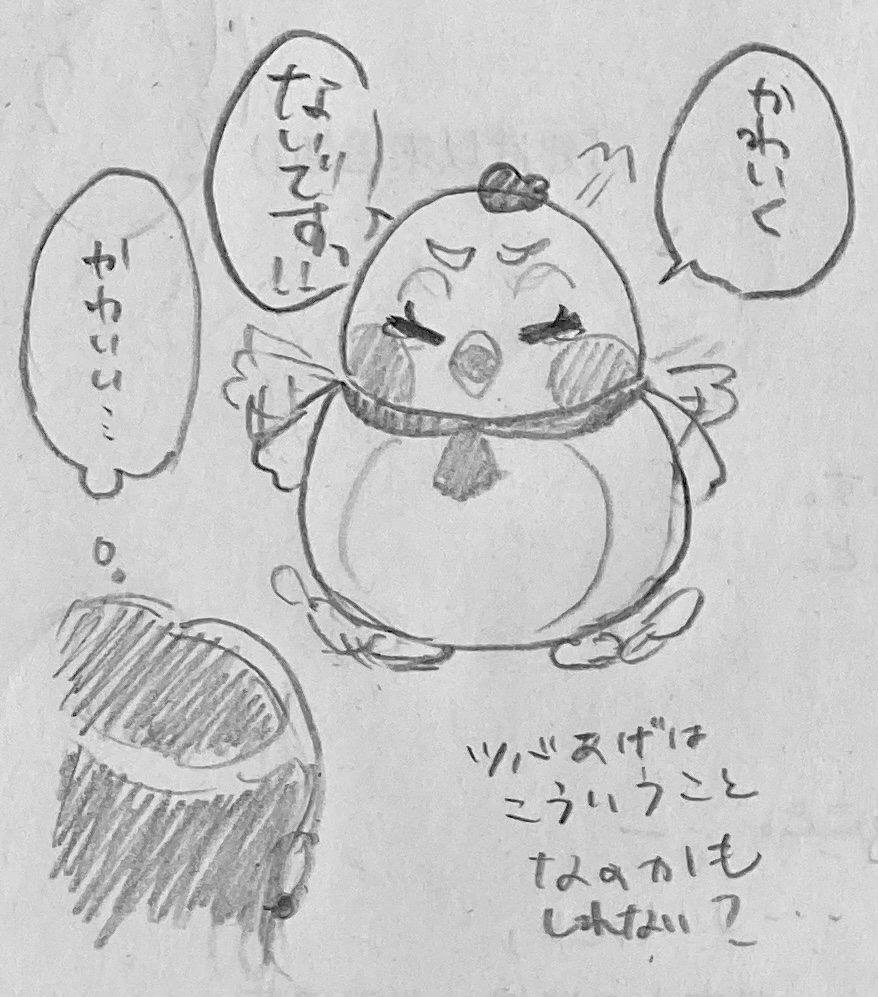 かわいく
ないですっ!!
かわいい…
ツバあげは
こういうこと
なのかも
しれない?